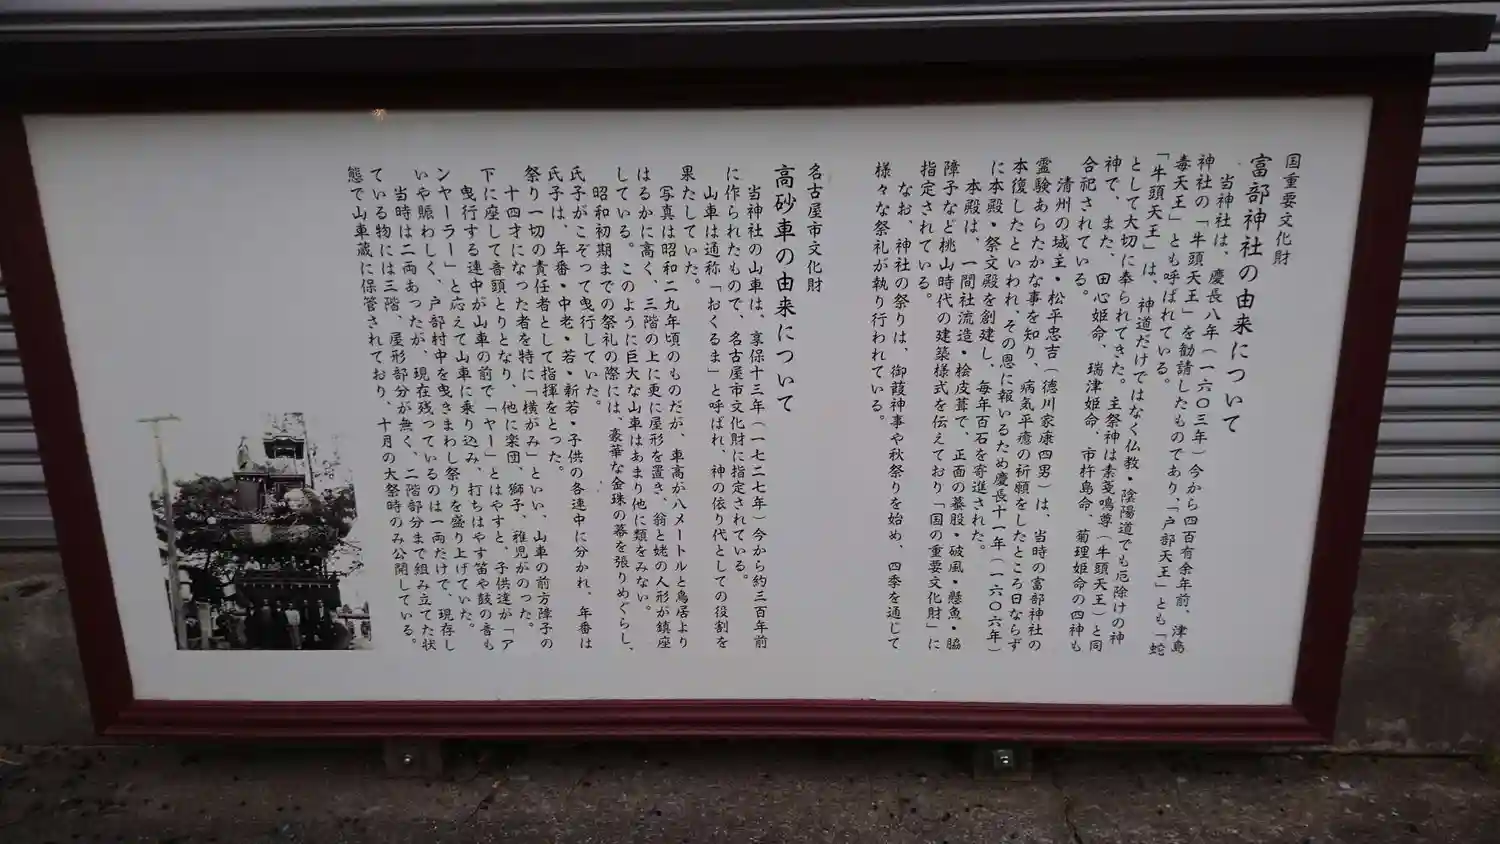 国重要文化財
富部神社の由来について
当神社は、慶長八年(一六〇三年)今から四百有余年前、津島
神社の「牛頭天王」を勧請したものであり、「戸部天王」とも「蛇
毒天王」とも呼ばれている。
「牛頭天王」は、神道だけではなく仏教・陰陽道でも厄除けの神
として大切に奉られてきた。主祭神は素戔嗚尊(牛頭天王)と同
神で、また、田心姫命、瑞津姫命、市杵島命、菊理姫命の四神も
合祀されている。
清州の城主・松平忠吉(徳川家康四男)は、当時の富部神社の
霊験あらたかな事を知り、病気平癒の祈願をしたところ日ならず
本復したといわれ、その恩に報いるため慶長十一年(一六〇六年)
に本殿・祭文殿を創建し、毎年百石を寄進された。
本殿は、一間社流造・桧皮葺で、正面の蟇股・破風・懸魚・脇
障子など桃山時代の建築様式を伝えており「国の重要文化財」に
指定されている。
なお、神社の祭りは、御葭神事や秋祭りを始め、四季を通じて
様々な祭礼が執り行われている。
名古屋市文化財
高砂車の由来について
当神社の山車は、享保十三年(一七二七年)今から約三百年前
に作られたもので、名古屋市文化財に指定されている。
山車は通称「おくるま」と呼ばれ、神の依り代としての役割を
果たしていた。
写真は昭和二九年頃のものだが、車高が八メートルと鳥居より
はるかに高く、三階の上に更に屋形を置き、翁と姥の人形が鎮座
している。このように巨大な山車はあまり他に類をみない。
昭和初期までの祭礼の際には、豪華な金珠の幕を張りめぐらし、
氏子がこぞって曳行していた。
氏子は、年番・中老・若・新若・子供の各連中に分かれ、年番は
祭り一切の責任者として指揮をとった。
十四才になった者を特に「横がみ」といい、山車の前方障子の
下に座して音頭とりとなり、他に楽団、獅子、稚児がのった。
曳行する連中が山車の前で「ヤー」とはやすと、子供達が「ア
ンヤーラー」と応えて山車に乗り込み、打ちはやす笛や鼓の音も
いや賑わしく、戸部村中を曳きまわし祭りを盛り上げていた。
当時は二両あったが、現在残っているのは一両だけで、現存し
ている物には三階、屋形部分が無く、二階部分まで組み立てた状
態で山車蔵に保管されており、十月の大祭時のみ公開している。